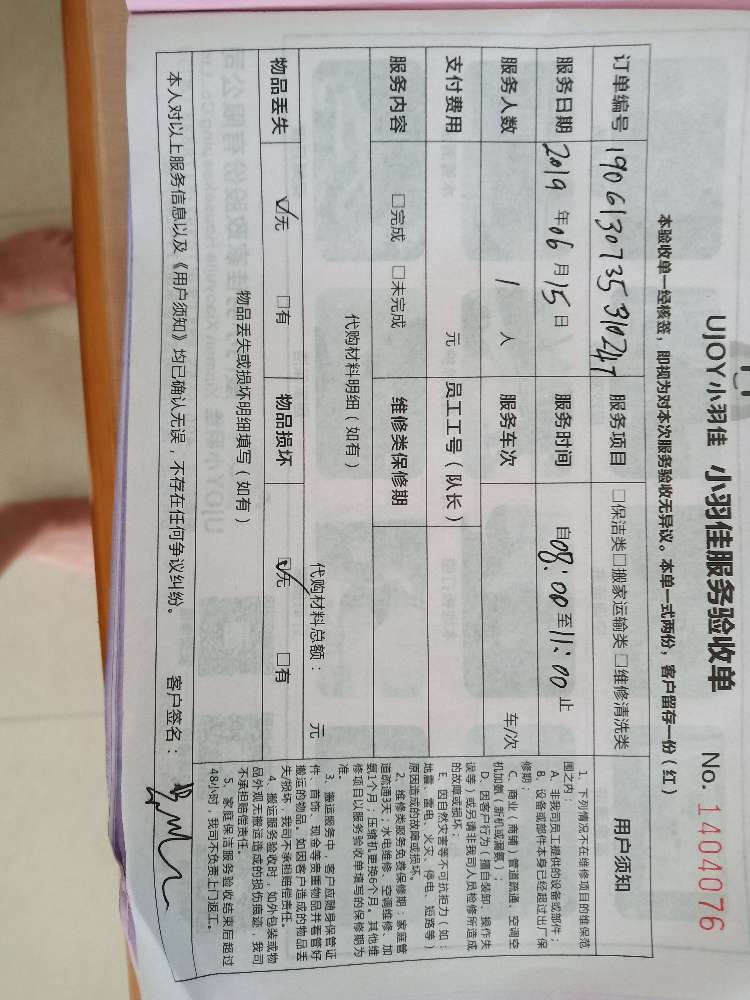 UJOY小羽佳 小羽佳服务验收单 No. 1404076
本验收单一经核签，即视为对本次服务验收无异议。本单一式两份，客户留存一份（红）
订单编号 190613073531024T 服务项目 □保洁类□搬家运输类□维修清洗类
服务日期 2019 年 06 月 15 日 服务时间 自 08:00 至 11:00 止
服务人数 1 人 服务车次 车/次
支付费用 元 员工工号（队长）
服务内容 □完成 □未完成 维修类保修期
代购材料明细（如有）
代购材料总额： 元
物品丢失 ☑无 □有 物品损坏 ☑无 □有
物品丢失或损坏明细填写（如有）
本人对以上服务信息以及《用户须知》均已确认无误，不存在任何争议纠纷。 客户签名：
用户须知
1、下列情况不在维修项目的维保范
围之内：
A、非我司员工提供的设备或部件；
B、设备或部件本身已经超过出厂保
修期；
C、商业（商铺）管道疏通、空调空
机加氨（新机或漏氨）；
D、因客户行为（擅自装卸、操作失
误等）或另请非我司人员检修所造成
的故障或损坏；
E、因自然灾害等不可抗拒力（如：
地震、雷电、火灾、停电、短路等）
原因造成的故障或损坏。
2、维修类服务免费保修期：家庭管
道疏通3天；水电维修、空调维修、加
氨1个月；压缩机更换6个月。其他维
修项目以服务验收单填写的保修期为
准。
3、搬运服务中，客户应随身保管证
件、首饰、现金等贵重物品并看管好
搬运的物品。如因客户造成的物品丢
失/损坏，我司不承担赔偿责任。
4、搬运服务验收时，如外包装或物
品外观无搬运造成的损伤痕迹，我司
不承担赔偿责任。
5、家庭保洁服务验收结束后超过
48小时，我司不负责上门返工。